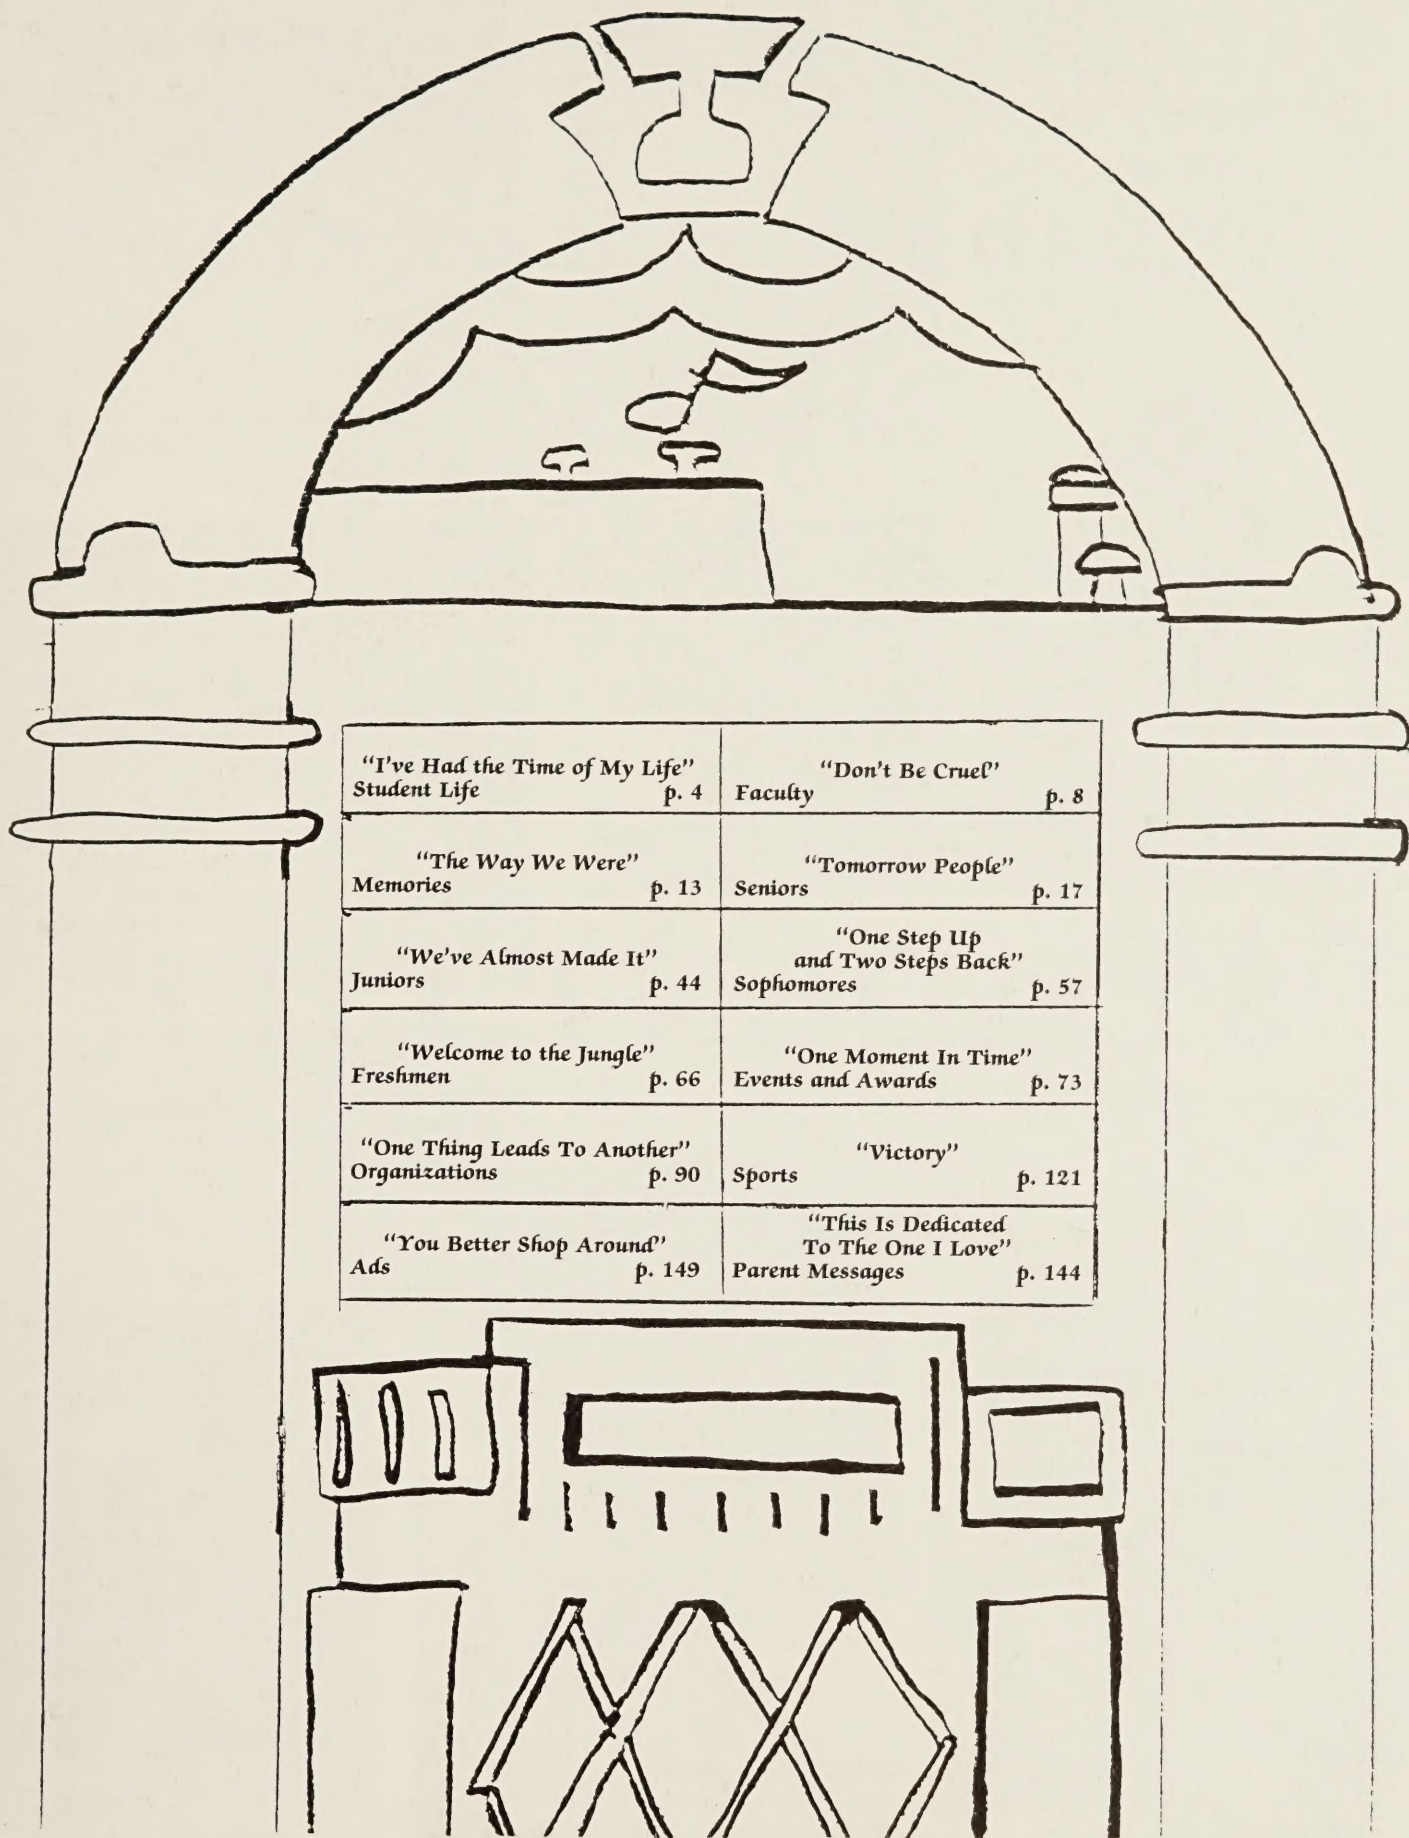 "I've Had the Time of My Life"
Student Life p. 4
"Don't Be Cruel"
Faculty p. 8
"The Way We Were"
Memories p. 13
"Tomorrow People"
Seniors p. 17
"We've Almost Made It"
Juniors p. 44
"One Step Up
and Two Steps Back"
Sophomores p. 57
"Welcome to the Jungle"
Freshmen p. 66
"One Moment In Time"
Events and Awards p. 73
"One Thing Leads To Another"
Organizations p. 90
"Victory"
Sports p. 121
"You Better Shop Around"
Ads p. 149
"This Is Dedicated
To The One I Love"
Parent Messages p. 144